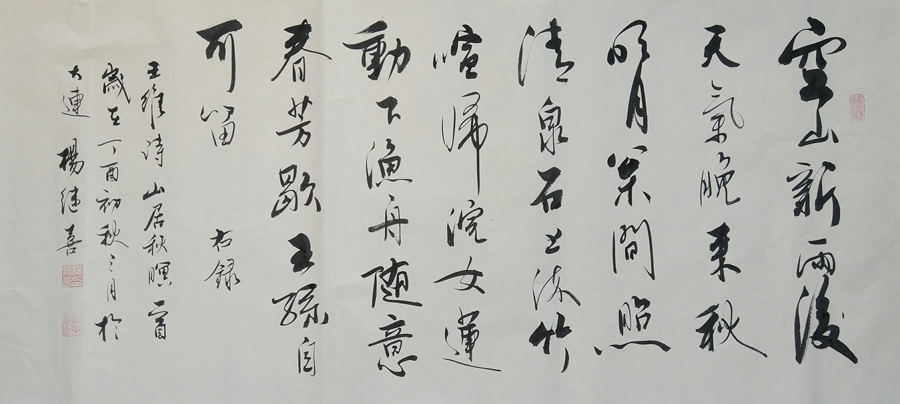 空山新雨後
天氣晚來秋
明月松間照
清泉石上流竹
喧歸浣女蓮
動下漁舟随意
春芳歇王孫自
可留 右録
王維詩山居秋暝一首
歲在丁酉初秋之月於
大連 楊继喜